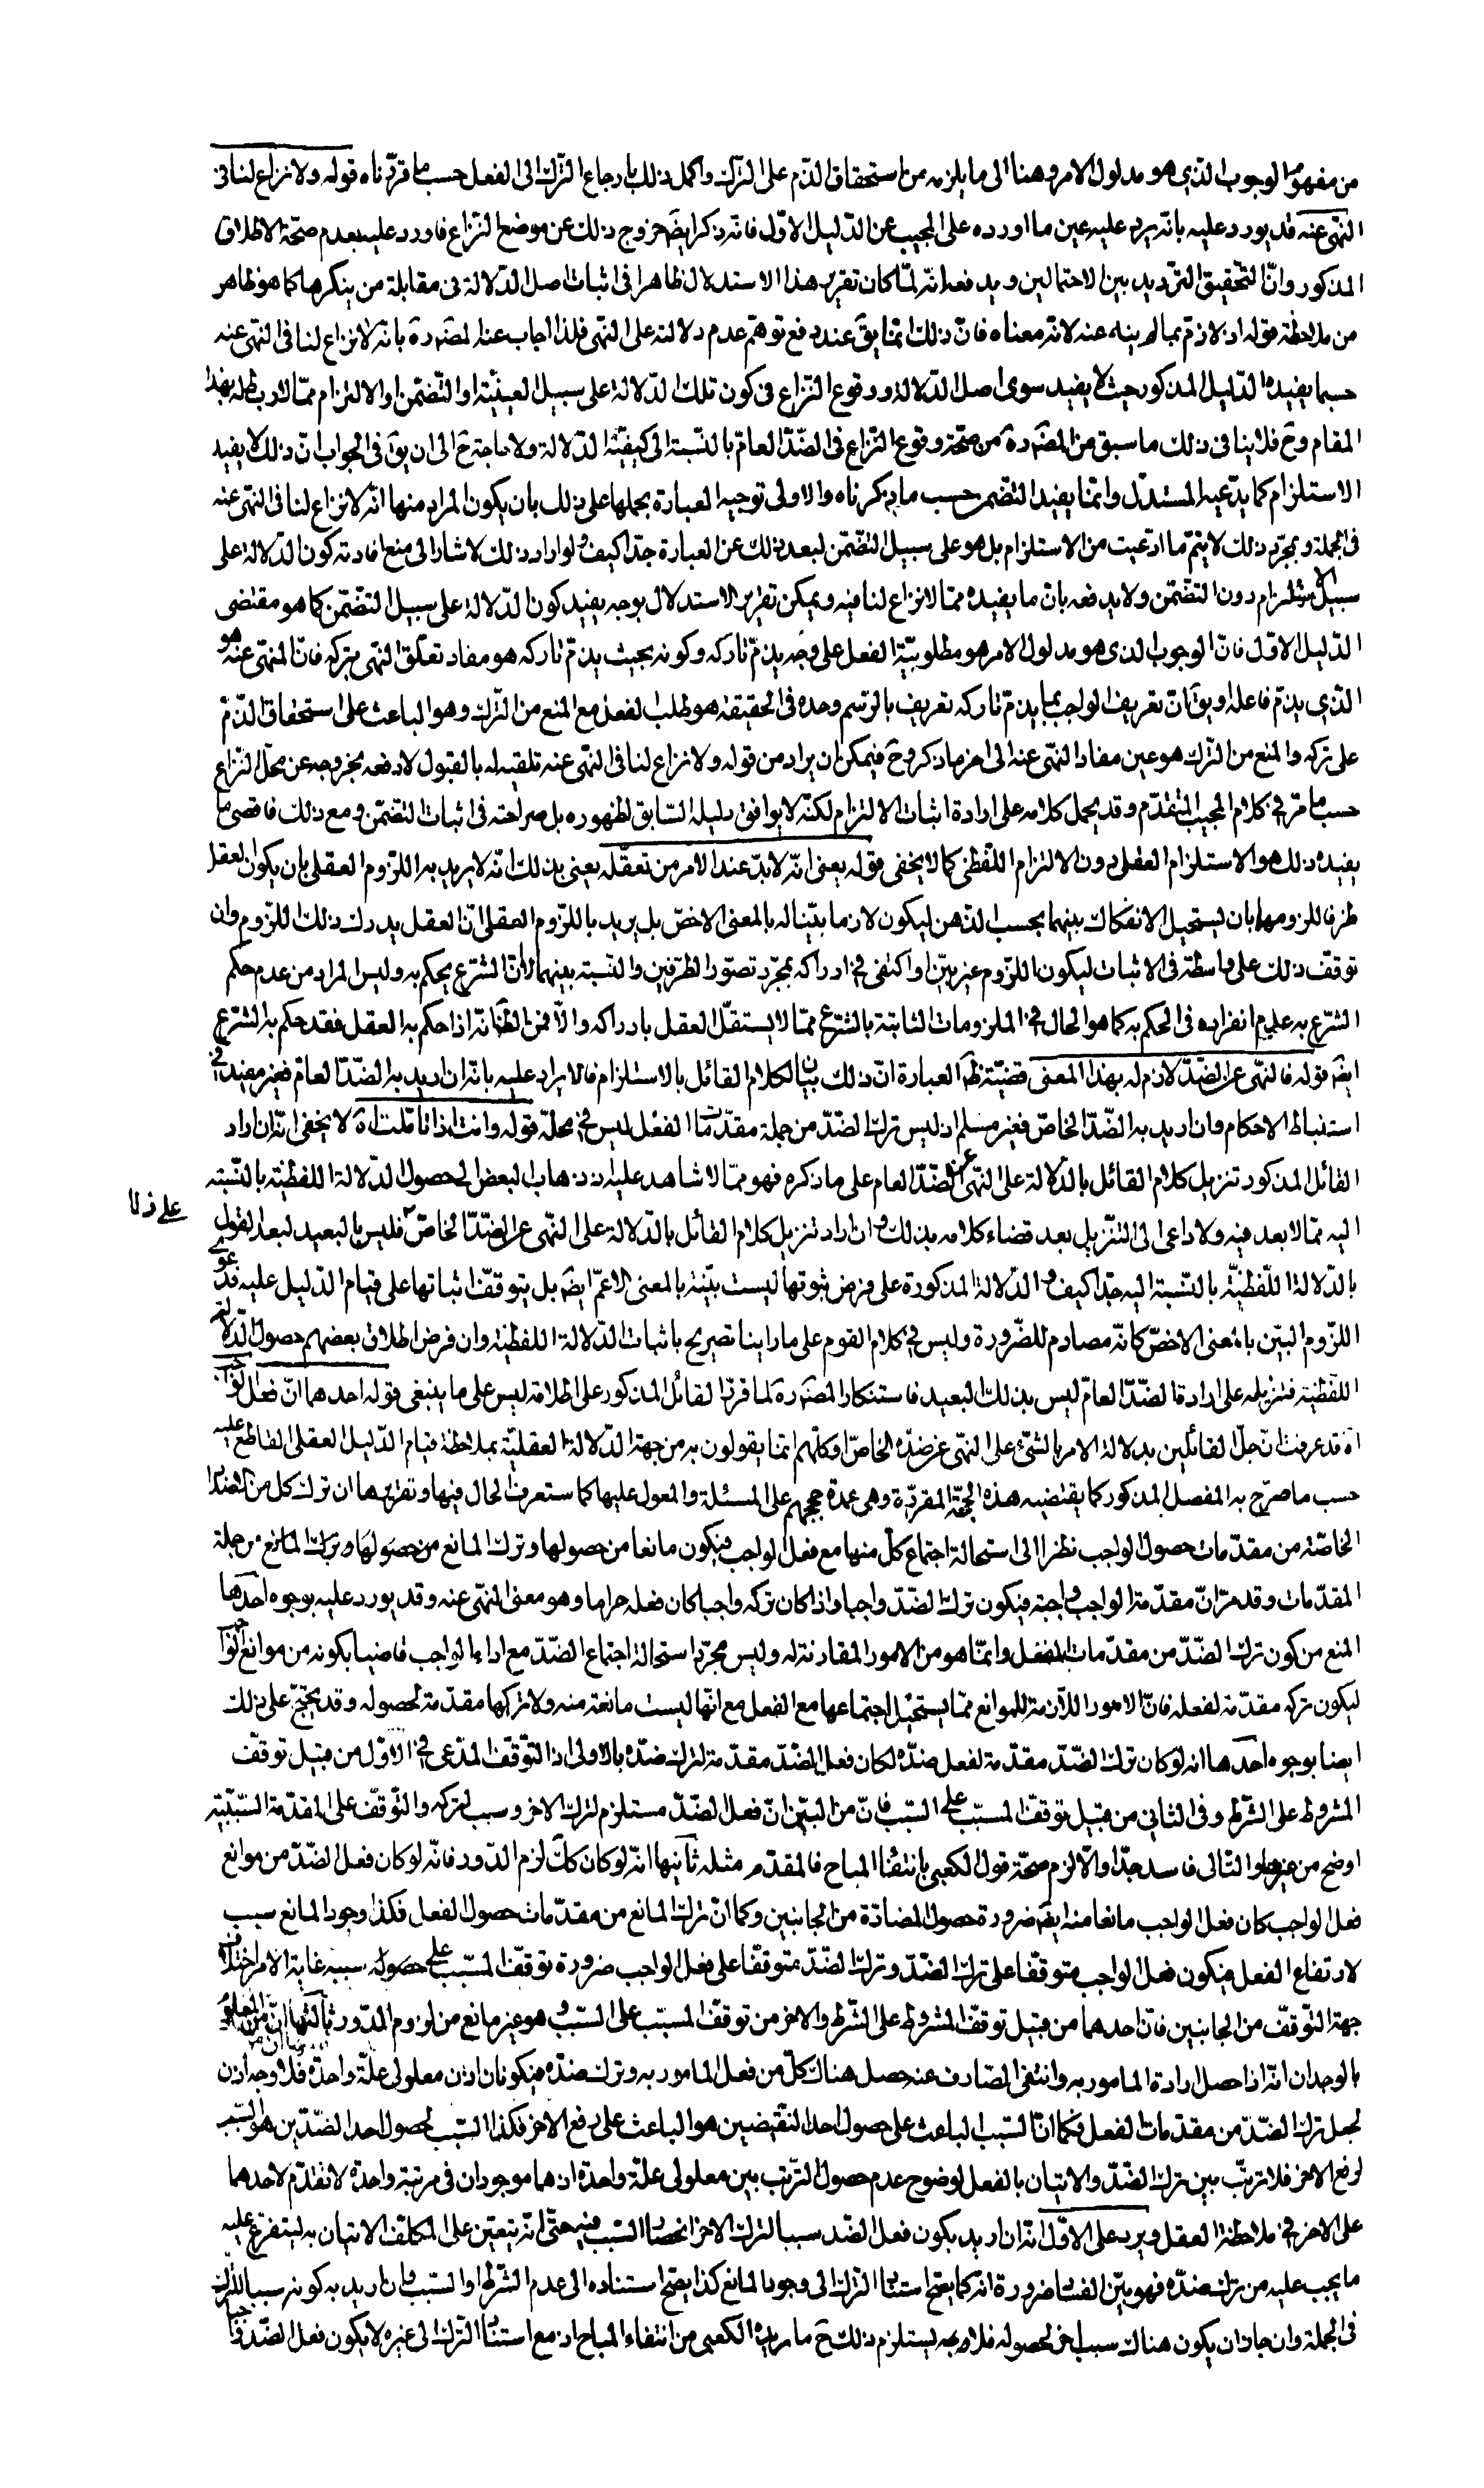 من مفهوم الوجوب الذي هو مدلول الامر وهنا الى ما يلزمه من استحقاق الذم على الترك واكمل ذلك بارجاع الترك الى الفعل حسب ما قررناه قوله ولا نزاع لنا فى
النهى عنه قد يورد عليه بانه يرد عليه عين ما اورده على المجيب عن الدليل الاول فانه ذكر ايضا خروج ذلك عن موضع النزاع فاورد عليه بعدم صحة الاطلاق
المذكور وان التحقيق الترديد بين الاحتمالين ويدفعه انه لما كان تقرير هذا الاستدلال ظاهرا فى اثبات اصل الدلالة فى مقابلة من ينكرها كما هو ظاهر
من ملاحظة قوله اذ لا ذم بما لم ينه عنه لانه معناه فان ذلك انما يق عند دفع توهم عدم دلالته على النهى فلذا اجاب عنه المصنف ره بانه لا نزاع لنا فى النهى عنه
حسبما يفيده الدليل المذكور حيث لا يفيد سوى اصل الدلالة ووقوع النزاع فى كون تلك الدلالة على سبيل العينية او التضمن او الالتزام مما لا ربط له بهذا
المقام وح فلا ينافى ذلك ما سبق من المصنف ره من صحة وقوع النزاع فى الضد العام بالنسبة الى كيفية الدلالة ولا حاجة ح الى ان يق فى الجواب ان ذلك لا يفيد
الاستلزام كما يدعيه المستدل وانما يفيد التضمن حسب ما ذكرناه والاولى توجيه العبارة بحملها على ذلك بان يكون المراد منها انه لا نزاع لنا فى النهى عنه
فى الجملة وبمجرد ذلك لا يتم ما ادعيت من الاستلزام بل هو على سبيل التضمن لبعد ذلك عن العبارة جدا كيف ولو اراد ذلك لاشار الى منع افادته كون الدلالة على
سبيل الاستلزام دون التضمن ولا يدفعه بان ما يفيده مما لا نزاع لنا فيه ويمكن تقرير الاستدلال بوجه يفيد كون الدلالة على سبيل التضمن كما هو مقتضى
الدليل الاول فان الوجوب الذى هو مدلول الامر هو مطلوبية الفعل على وجه يذم تاركه وكونه بحيث يذم تاركه هو مفاد تعلق النهى بتركه فان المنهى عنه هو
الذي يذم فاعله ويق ان تعريف الواجب بما يذم تاركه تعريف بالرسم وحده فى الحقيقة هو طلب الفعل مع المنع من الترك وهو الباعث على استحقاق الذم
على تركه والمنع من الترك هو عين مفاد النهى عنه الى اخر ما ذكر وح فيمكن ان يراد من قوله ولا نزاع لنا فى النهى عنه تلقيه له بالقبول لا دفعه بخروجه عن محل النزاع
حسب ما مر فى كلام المجيب المتقدم وقد يحمل كلامه على ارادة اثبات الالتزام لكنه لا يوافق دليله السابق لظهوره بل صراحته فى اثبات التضمن ومع ذلك فاقصى ما
يفيده ذلك هو الاستلزام العقلى دون الالتزام اللفظى كما لا يخفى قوله يعنى انه لا بد عند الامر من تعقله يعنى بذلك انه لا يريد به اللزوم العقلى بان يكون العقل
ظرفا للزومها بان يستحيل الانفكاك بينهما بحسب الذهن ليكون لازما بينا له بالمعنى الاخص بل يريد باللزوم العقلى ان العقل يدرك ذلك اللزوم وان
توقف ذلك على واسطة فى الاثبات ليكون اللزوم غير بين او اكتفى فى ادراكه بمجرد تصور الطرفين والنسبة بينهما لا ان الشرع يحكم به وليس المراد من عدم حكم
الشرع به عليهم انفراده فى الحكم به كما هو الحال فى الملزومات الثابتة بالشرع مما لا يستقل العقل بادراكه والا فمن الظ انه اذا حكم به العقل فقد حكم به الشرع
ايض قوله فالنهى عن الضد لازم له بهذا المعنى قضية ظ العبارة ان ذلك بيان لكلام القائل بالاستلزام فالايراد عليه بانه ان اريد به الضد العام فغير مفيد فى
استنباط الاحكام وان اريد به الضد الخاص فغير مسلم اذ ليس ترك الضد من جملة مقدمات الفعل ليس فى محله قوله وانت اذا تاملت اه لا يخفى انه ان اراد
القائل المذكور تنزيل كلام القائل بالدلالة على النهى عن الضد العام على ما ذكره فهو مما لا شاهد عليه اذ ذهاب البعض الى حصول الدلالة اللفظية بالنسبة
اليه مما لا بعد فيه ولا داعى الى التنزيل بعد قضاء كلامه بذلك وان اراد تنزيل كلام القائل بالدلالة على النهى عن الضد الخاص فليس بالبعيد لبعد القول
على ذلا
بالدلالة اللفظية بالنسبة اليه جدا كيف والدلالة المذكورة على فرض ثبوتها ليست بينة بالمعنى الاعم ايض بل يتوقف اثباتها على قيام الدليل عليه فدعوى
اللزوم البين بالمعنى الاخص كانه مصادم للضرورة وليس فى كلام القوم على ما راينا تصريح باثبات الدلالة اللفظية وان فرض اطلاق بعضهم حصول الدلالة
اللفظية فتنزيله على ارادة الضد العام ليس بذلك البعيد فاستنكار المصنف ره لما قرره القائل المذكور على اطلاقه ليس على ما ينبغى قوله احدهما ان فعل الواجب
اه قد عرفت ان جل القائلين بدلالة الامر بالشئ على النهى عن ضده الخاص او كلهم انما يقولون به من جهة الدلالة العقلية بملاحظة قيام الدليل العقلى القاطع عليه
حسب ما صرح به المفصل المذكور كما يقتضيه هذه الحجة المقررة وهى عمدة حججهم على المسئلة والمعول عليها كما ستعرف الحال فيها وتقريرها ان ترك كل من الاضداد
الخاصة من مقدمات حصول الواجب نظرا الى استحالة اجتماع كل منها مع فعل الواجب فيكون مانعا من حصولها وترك المانع من حصولها وترك المانع من جملة
المقدمات وقد مر ان مقدمة الواجب واجبة فيكون ترك الضد واجبا واذا كان تركه واجبا كان فعله حراما وهو معنى النهى عنه وقد يورد عليه بوجوه احدها
المنع من كون ترك الضد من مقدمات الفعل وانما هو من الامور المقارنة له وليس مجرد استحالة اجتماع الضد مع اداء الواجب قاضيا بكونه من موانع الواجب
ليكون تركه مقدمة لفعله فان الامور اللازمة للموانع مما يستحيل اجتماعها مع الفعل مع انها ليست مانعة منه ولا تركها مقدمة لحصوله وقد يحتج على ذلك
ايضا بوجوه احدها انه لو كان ترك الضد مقدمة لفعل ضده لكان فعل الضد مقدمة لترك ضده بالاولى اذ التوقف المدعى فى الاول من قبيل توقف
المشروط على الشرط وفى الثانى من قبيل توقف المسبب على السبب فان من البين ان فعل الضد مستلزم لترك الاخر وسبب لتركه والتوقف على المقدمة السببية
اوضح من غيرها والتالى فاسد جدا والا لزم صحة قول الكعبى بانتفاء المباح فالمقدم مثله ثانيها انه لو كان كك لزم الدور فانه لو كان فعل الضد من موانع
فعل الواجب كان فعل الواجب مانعا منه ايض ضرورة حصول المضادة من الجانبين وكما ان ترك المانع من مقدمات حصول الفعل فكذا وجود المانع سبب
لارتفاع الفعل فيكون فعل الواجب متوقفا على ترك الضد وترك الضد متوقفا على فعل الواجب ضرورة توقف المسبب على حصول سببه غاية الامر اختلاف
جهة التوقف من الجانبين فان احدهما من قبيل توقف المشروط على الشرط والاخر من توقف المسبب على السبب وهو غير مانع من لزوم الدور ثالثها ان من المعلوم
بالوجدان انه اذا حصل ارادة المامور به وانتفى الصارف عنه حصل هناك كل من فعل المامور به وترك ضده فيكونان اذن معلولى علة واحدة فلا وجه اذن
لجعل ترك الضد من مقدمات الفعل فكما ان السبب الباعث على حصول احد النقيضين هو الباعث على رفع الاخر فكذا السبب لحصول احد الضدين هو السبب
لرفع الاخر فلا ترتب بين ترك الضد والاتيان بالفعل لوضوح عدم حصول الترتب بين معلولى علة واحدة اذ هما موجودان فى مرتبة واحدة لا تقدم لاحدهما
على الاخر فى ملاحظة العقل ويرد على الاول انه ان اريد بكون فعل الضد سببا لترك الاخر انحصار السبب فيه حتى انه يتعين على المكلف الاتيان به ليتفرع عليه
ما يجب عليه من ترك ضده فهو بين الفساد ضرورة انه كما يصح استناد الترك الى وجود المانع كذا يصح استناده الى عدم الشرط او السبب وان اريد به كونه سببا للترك
فى الجملة وان جاز ان يكون هناك سبب اخر لحصوله فلا يستلزم ذلك ح ما يريده الكعبى من انتفاء المباح اذ مع استناد الترك الى غيره لا يكون فعل الضد واجبا